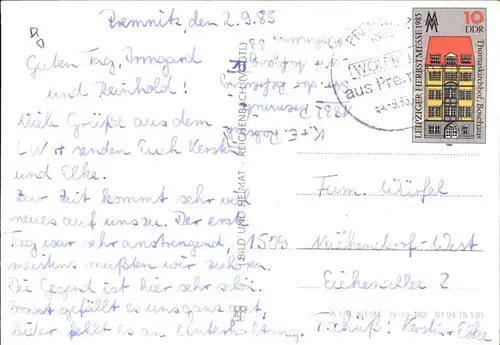 Premnitz, den 2.9.83
Guten Tag, Irmgard
und Reinhold!
Viele Grüße aus dem
LW + senden Euch Kerstin
und Elke.
Zur Zeit kommt sehr viel
neues auf uns zu. Der erste
Tag war sehr anstrengend,
meistens mußten wir zuhören.
Die Gegend ist hier sehr schön.
Sonst gefällt es uns ganz gut,
leider fehlt es an Unterhaltung.
Tschüß! Kerstin + Elke
K. + E.
1832 Premnitz
BILD UND HEIMAT · REICHENBACH (VOGTL)
aus Premnitz
10
DDR
LEIPZIGER HERBSTMESSE 1983
Thomaskirchhof, Bosehaus
Fam. Würfel
1509 Michendorf-West
Eichenallee 2
01 04 15 130